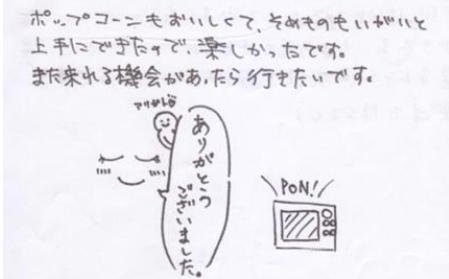 ポップコーンもおいしくて、そめものもいがいと
上手にできたので楽しかったです。
また来れる機会があったら行きたいです。
ありがとう
ございました。
PON!